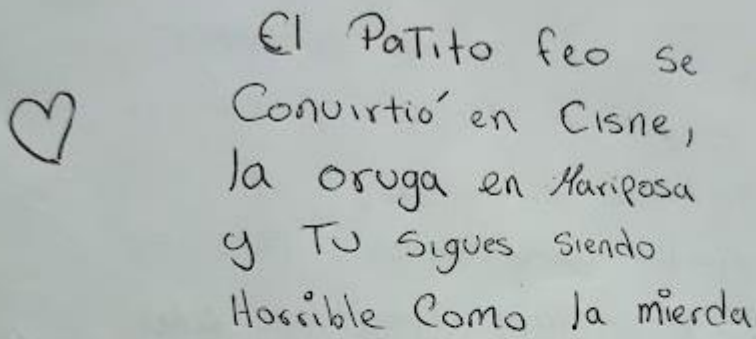 El Patito feo se
Convirtió en Cisne,
la oruga en Mariposa
y Tu sigues siendo
Horrible Como la mierda